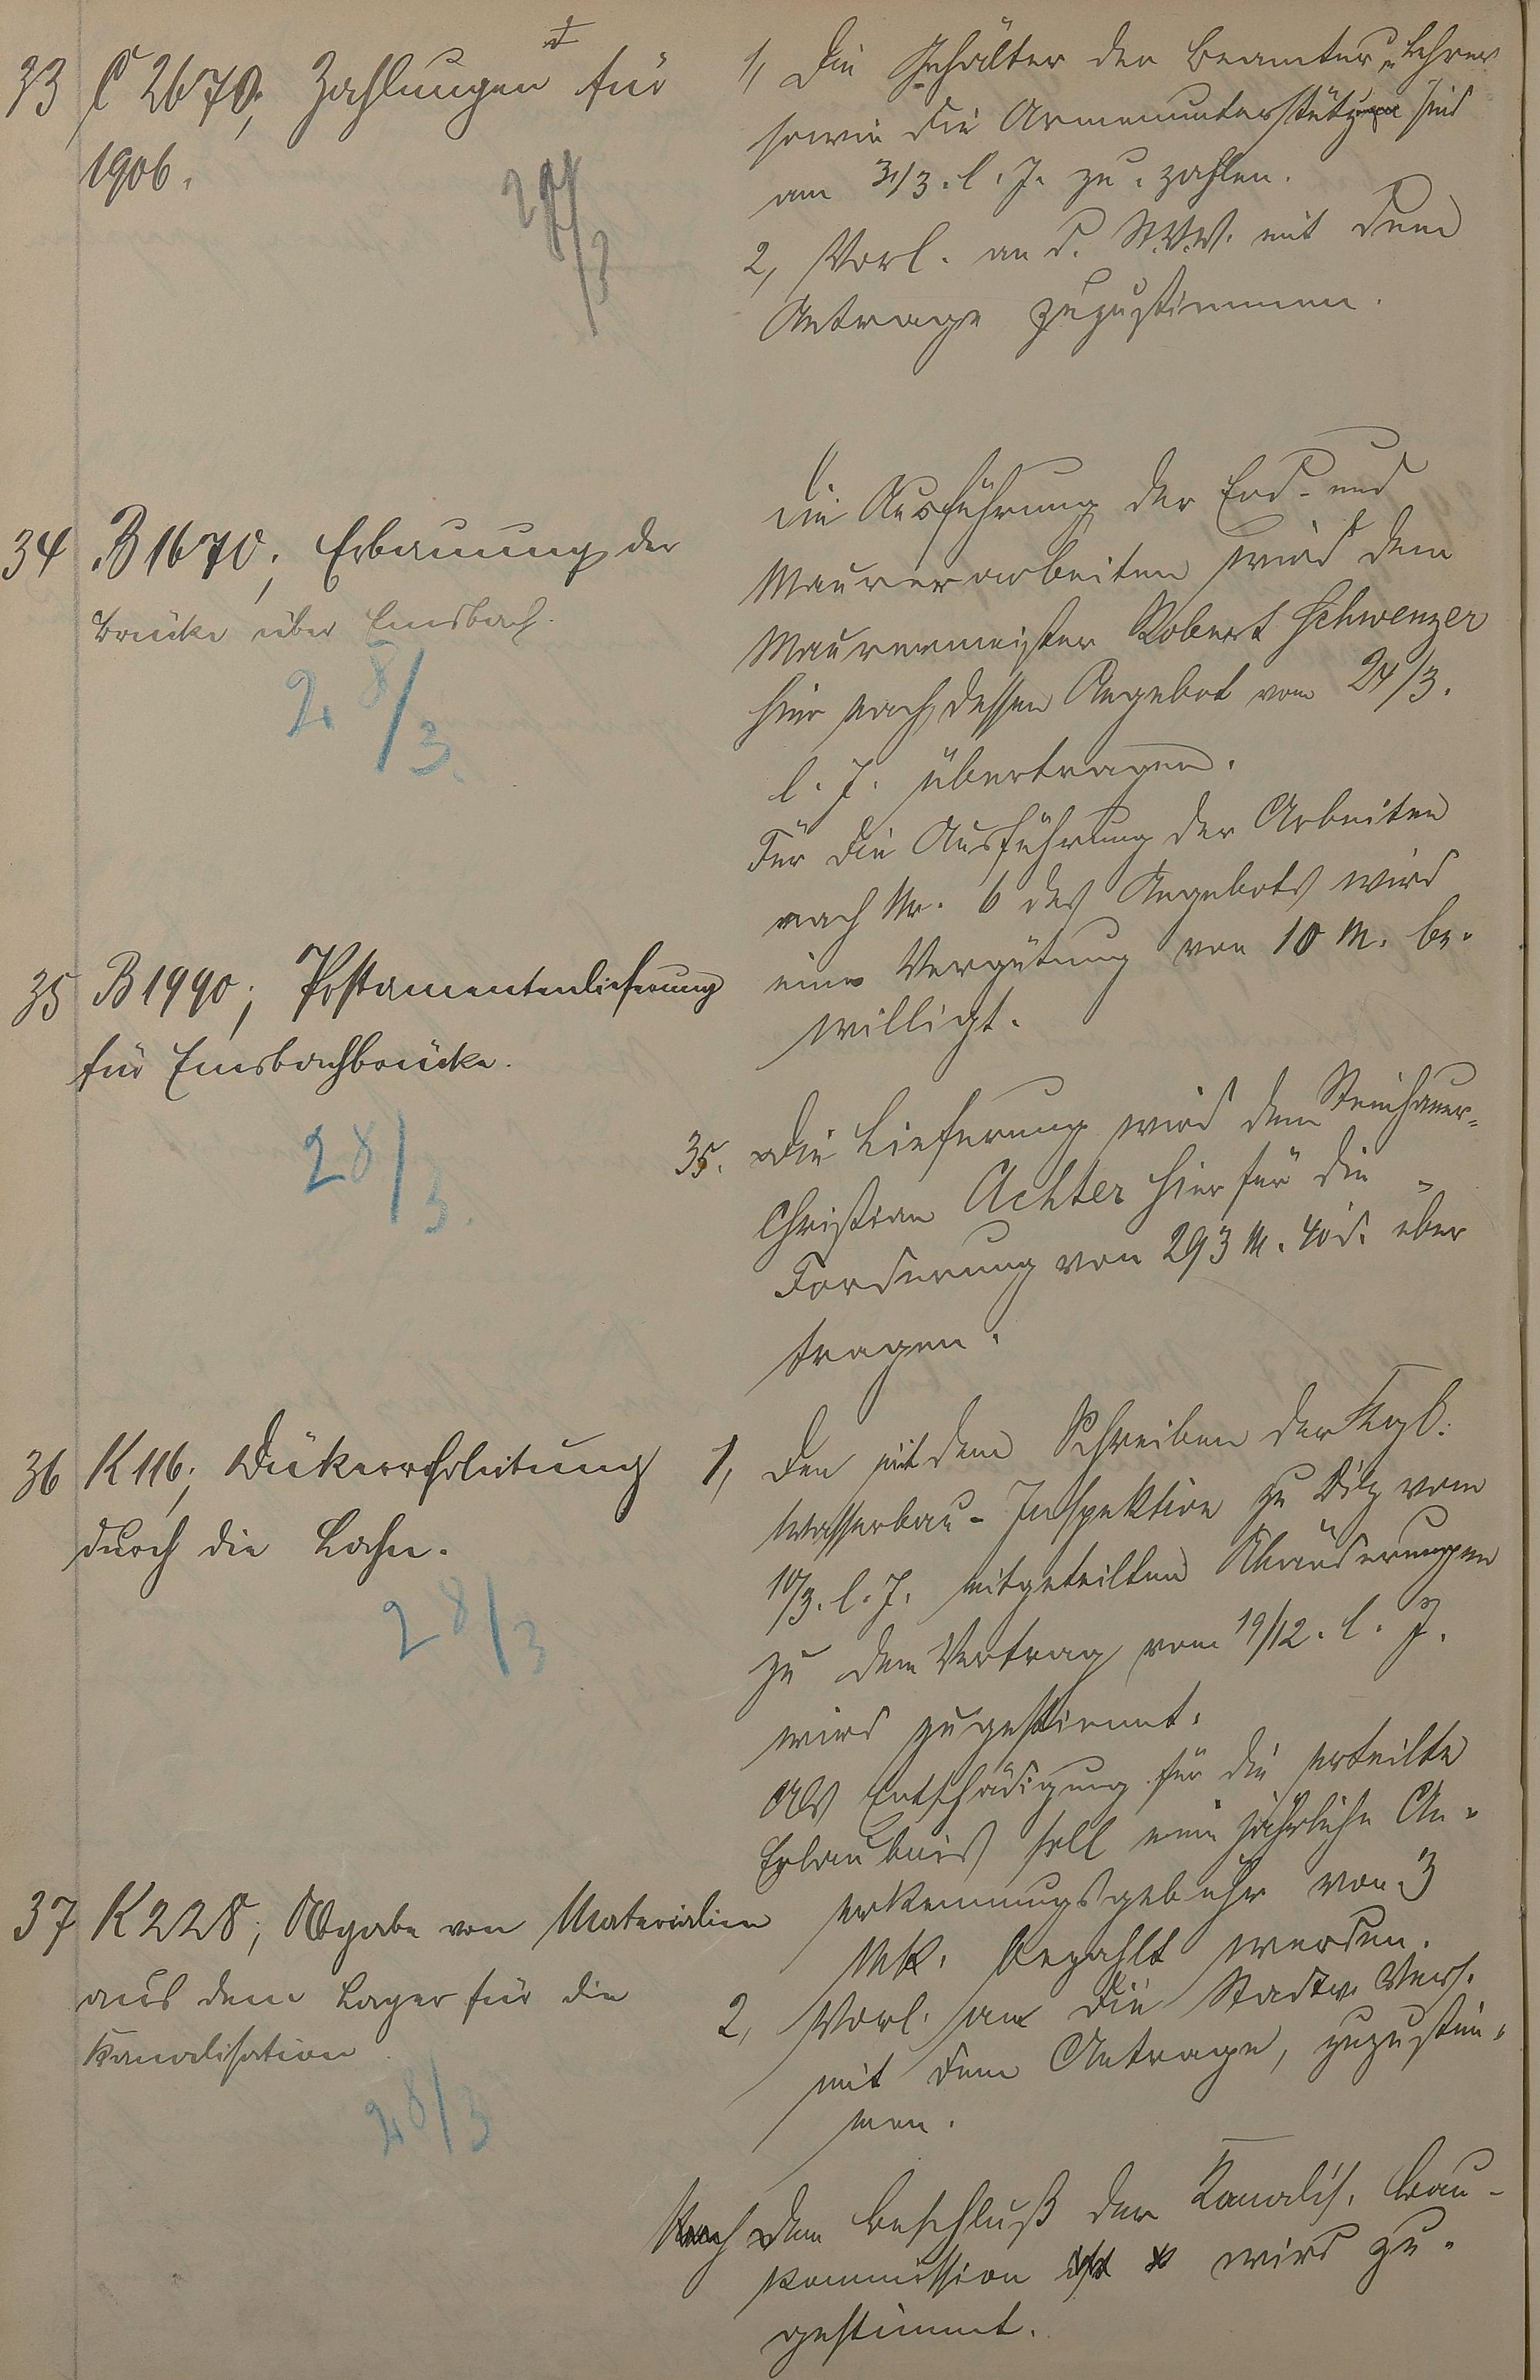 33 C 2670; Zahlungen für
1906.
27/3
1, Die Gehälter der Beamten u. Lehrer
sowie die Armenunterstützungen sind
am 31/3. l. J. zu zahlen.
2, Vorl. an d. St.V.V. mit dem
Antrage zuzustimmen.
34 B 1670; Erbauung der
Brücke über Emsbach.
28/3.
Die Ausführung der Erd- und
Maurerarbeiten wird dem
Maurermeister Robert Schwenzer
hier nach dessen Angebot vom 24/3.
l. J. übertragen.
Für die Ausführung der Arbeiten
nach Nr. 6 des Angebots wird
eine Vergütung von 10 M. be-
willigt.
35 B 1990; Postamentenlieferung
für Emsbachbrücke.
28/3.
35. Die Lieferung wird dem Steinhauer
Christian Achter hier für die
Forderung von 293 M. 40 d. über
tragen.
36 K 116; Dükerrohrleitung
durch die Lahn.
28/3
1, Den mit dem Schreiben der Kgl.
Wasserbau-Inspektion zu Diez vom
10/3. l. J. mitgeteilten Abänderungen
zu dem Vertrag vom 19/12. l. J.
wird zugestimmt.
Als Entschädigung für die erteilte
Erlaubnis soll eine jährliche An-
erkennungsgebühr von 3
Mk. bezahlt werden.
2, Vorl. an die Stadtv. Vers.
mit dem Antrage, zuzustim-
men.
37 K 228; Abgabe von Materialien
aus dem Lager für die
Kanalisation
28/3
Nach dem Beschluß der Kanalis. Bau-
kommission wird zu-
gestimmt.